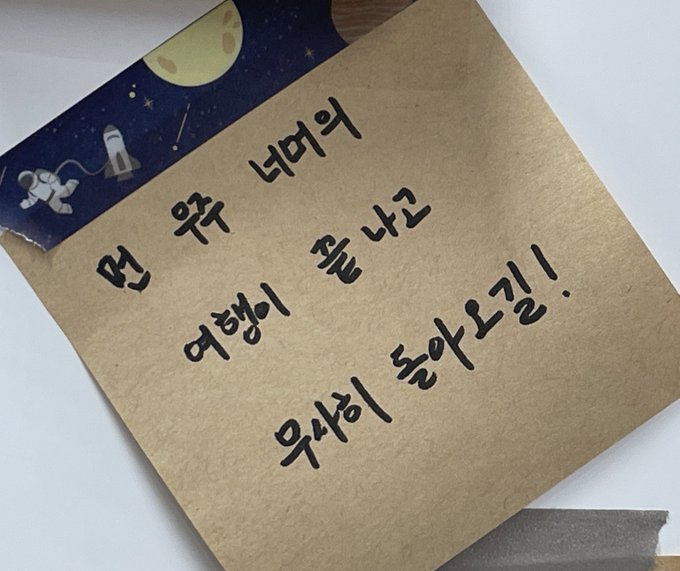 먼 우주 너머의
여행이 끝나고
무사히 돌아오길!